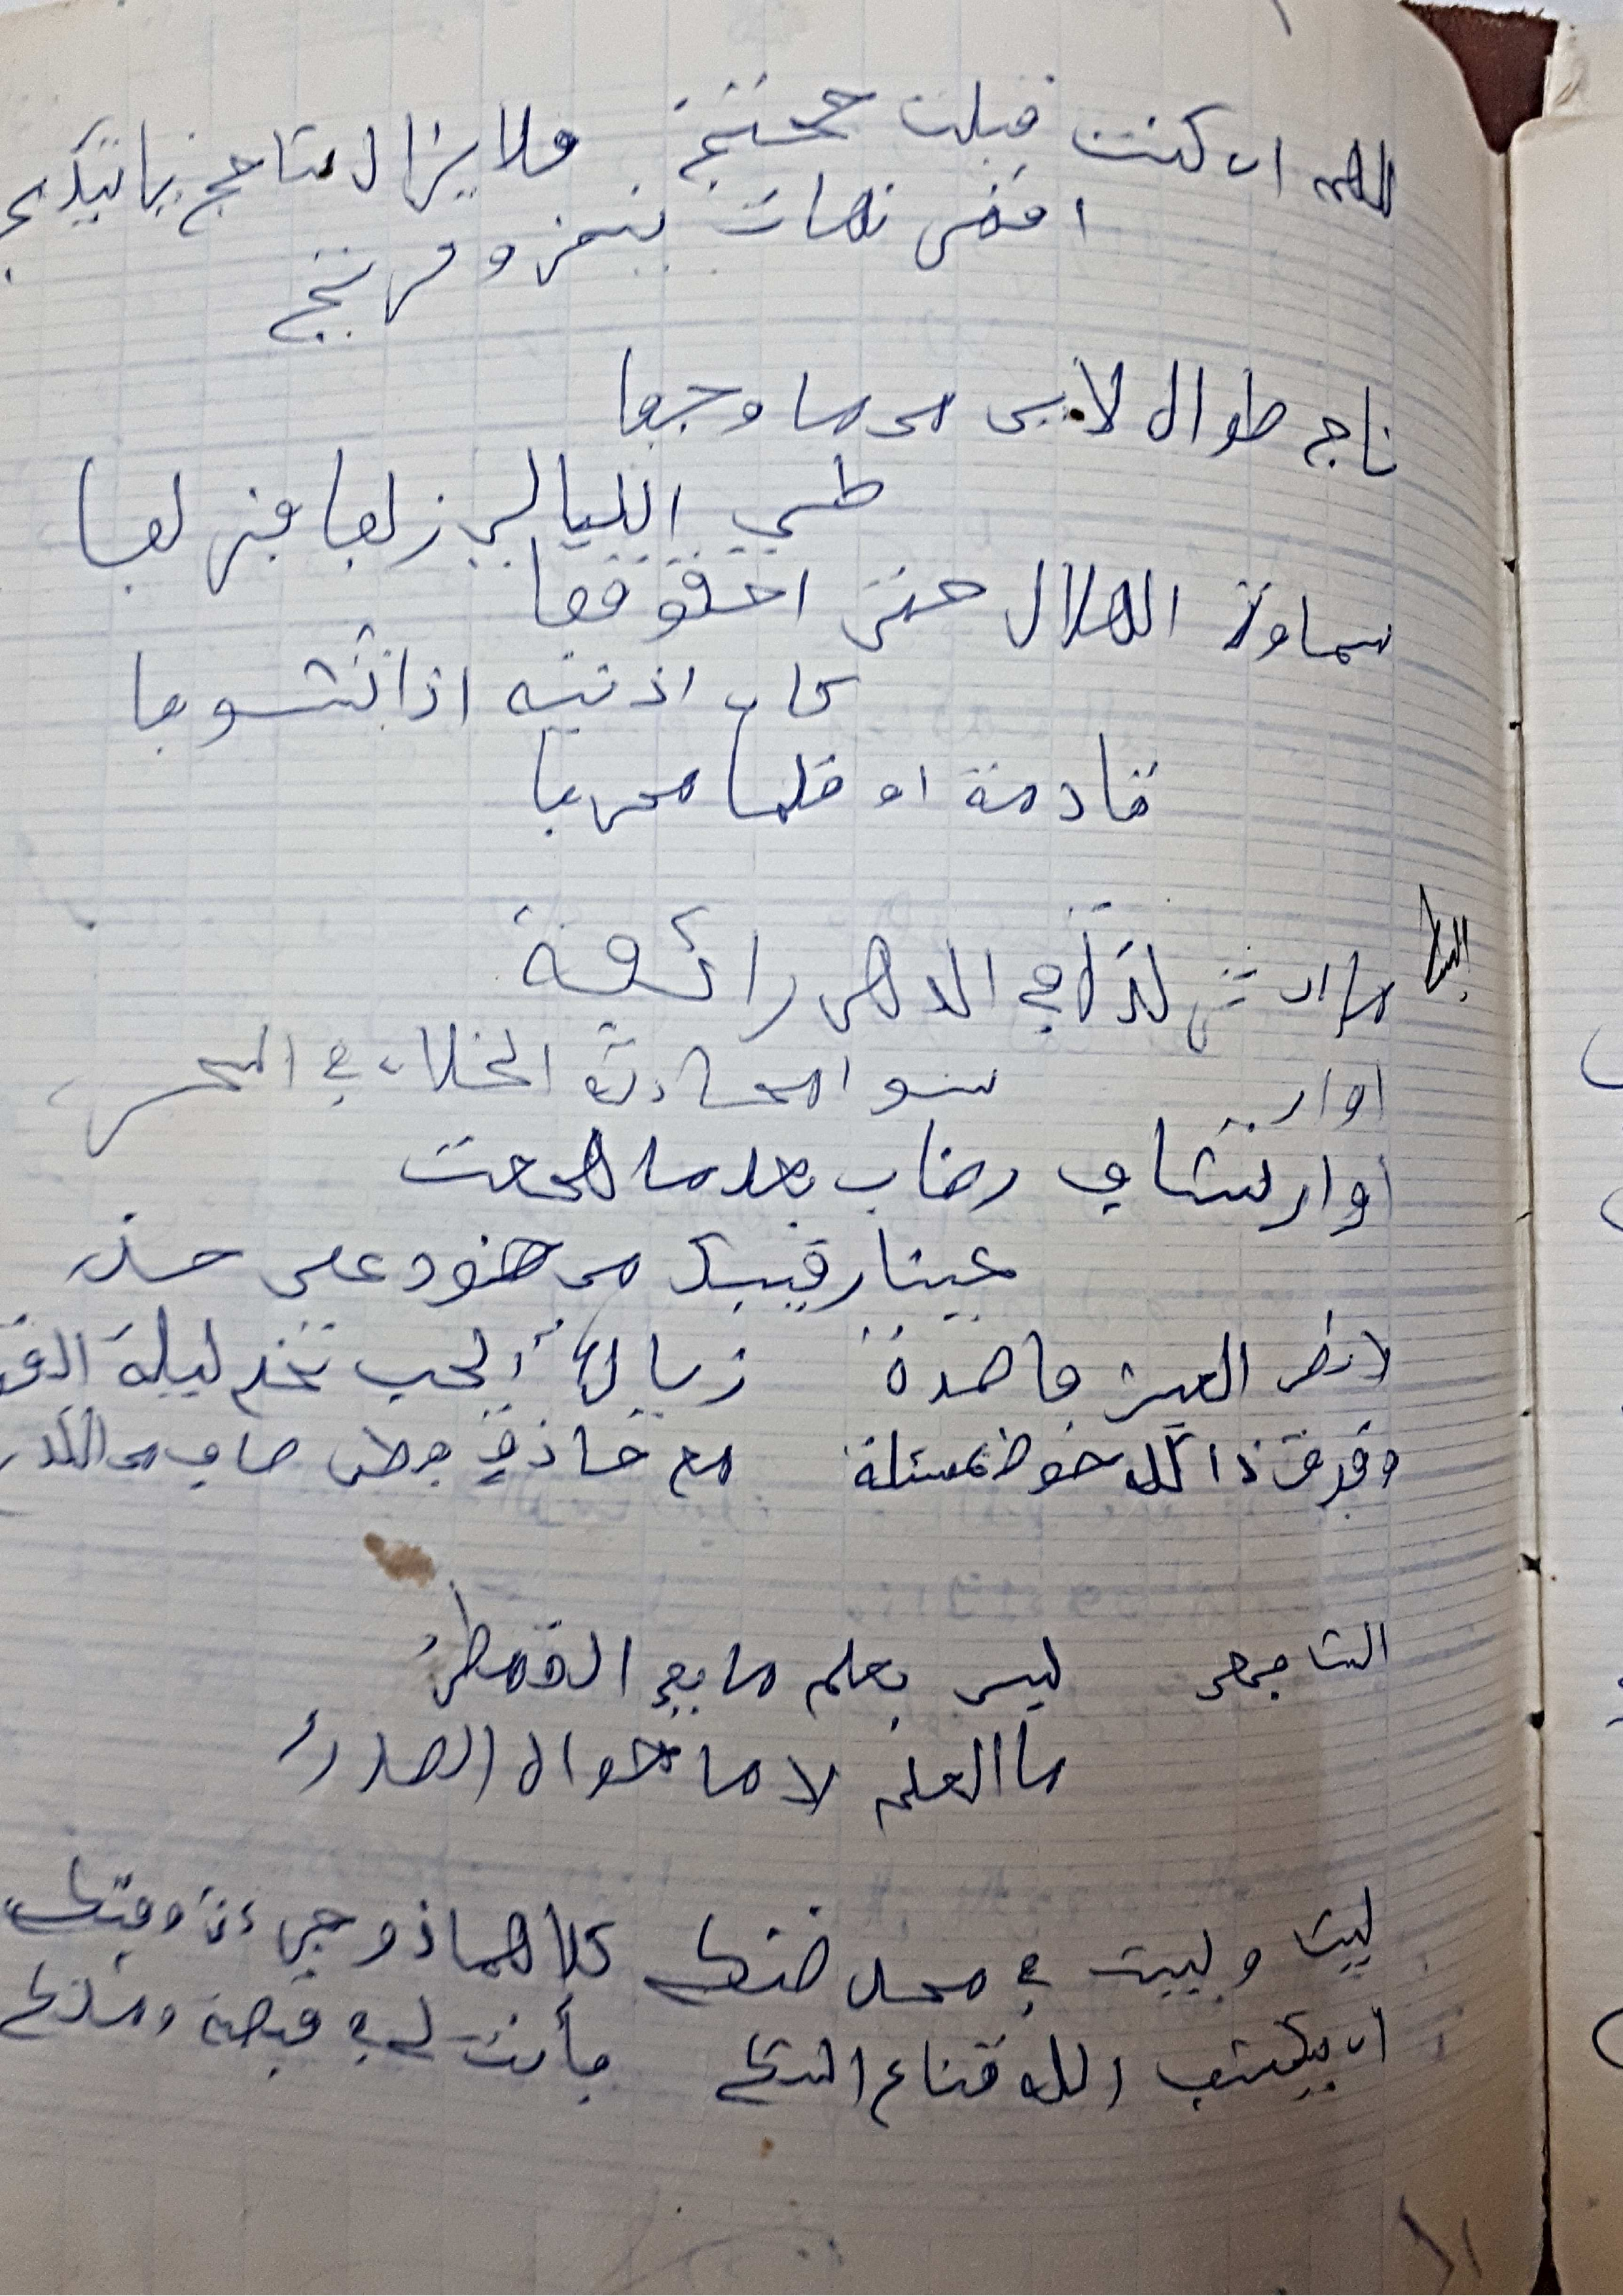 اللهم ان كنت قبلت حجتج فلا يزال شاحج ياتيك بج
اقمر نهات ينز وفرتج
ناج طواه الاين مما وجفا
طي الليالي زلفا فزلفا
سماوة الهلال حتى احقوقفا
كان اذنيه اذا تشوفا
قادمة او قلما محرفا
ما ان ثنى لذة في الدهر رائقة
سوا محادثة الخلان في السحر
اوار
او ارتشاف رضاب بعدما هجعت
عينا رقيبك من هنود على حذر
لا نظر العين قاصدة زيال الحب تخم ليلة
وفوق ذا لك خوض مسئلة مع حاذق فطن صاف من الكدر
الشافعي ليس بعلم ما يعي القمطر
ما العلم الا ما حواه الصدر
ليث وليث في محل ضنك كلاهما ذو جرءة وفتك
ان يكشف الله قناع الشك فأنت لي في قبضة وملك